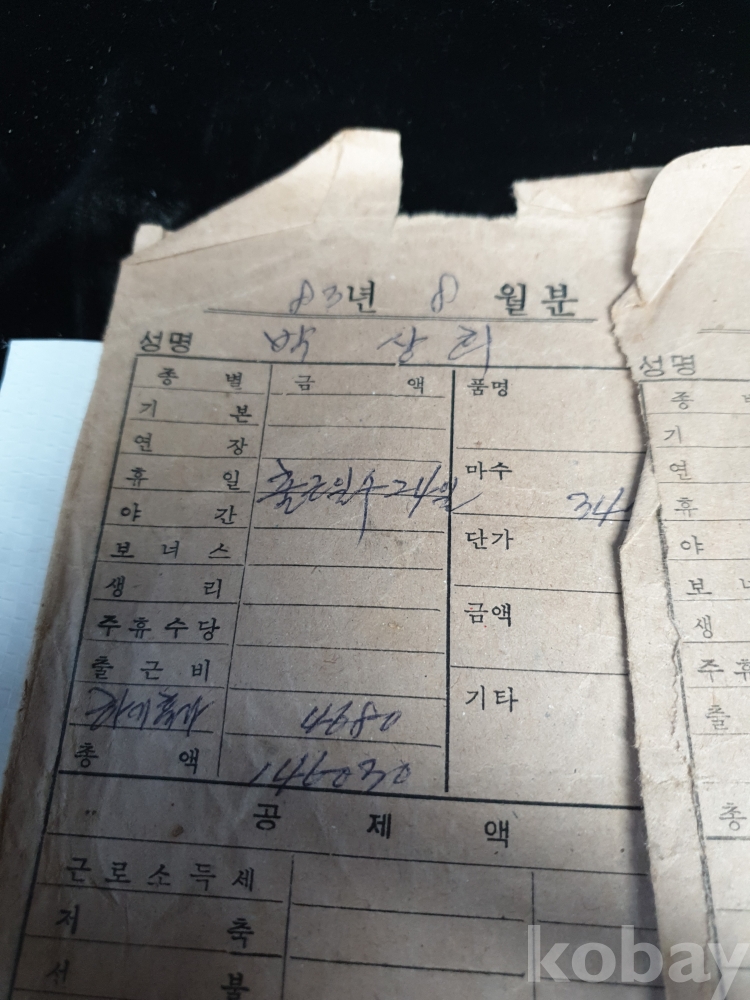 83년 8 월분
성명 박 상 희
종 별 금 액 품명
기 본
연 장
휴 일 출근일수 24일 마수 34
야 간
보 너 스 단가
생 리
주 휴 수 당 금액
출 근 비
4680 기타
총 액 146030
공 제 액
근 로 소 득 세
저 축
선 불
성명
종
기
연
휴
야
보 너
생
주 휴
출
총
kobay